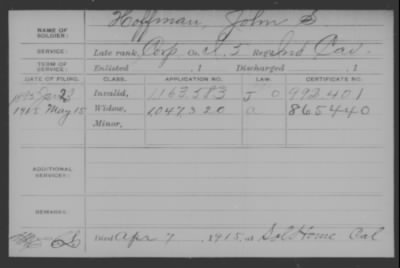 NAME OF SOLDIER: Hoffman, John S.
SERVICE: Late rank, Corp Co. 5 Reg't Ind Cav.
TERM OF SERVICE: Enlisted , 1 Discharged , 1
DATE OF FILING. CLASS. APPLICATION NO. LAW. CERTIFICATE NO.
Invalid, 1163.583 J O 992.401
1915 May 15 Widow, 1.047.320 a 865440
Minor,
ADDITIONAL SERVICES:
REMARKS:
Died Apr 7, 1915, at Sol Home Cal